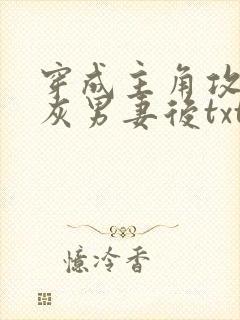 穿成主角攻
灰男妻後txt
憶冷香